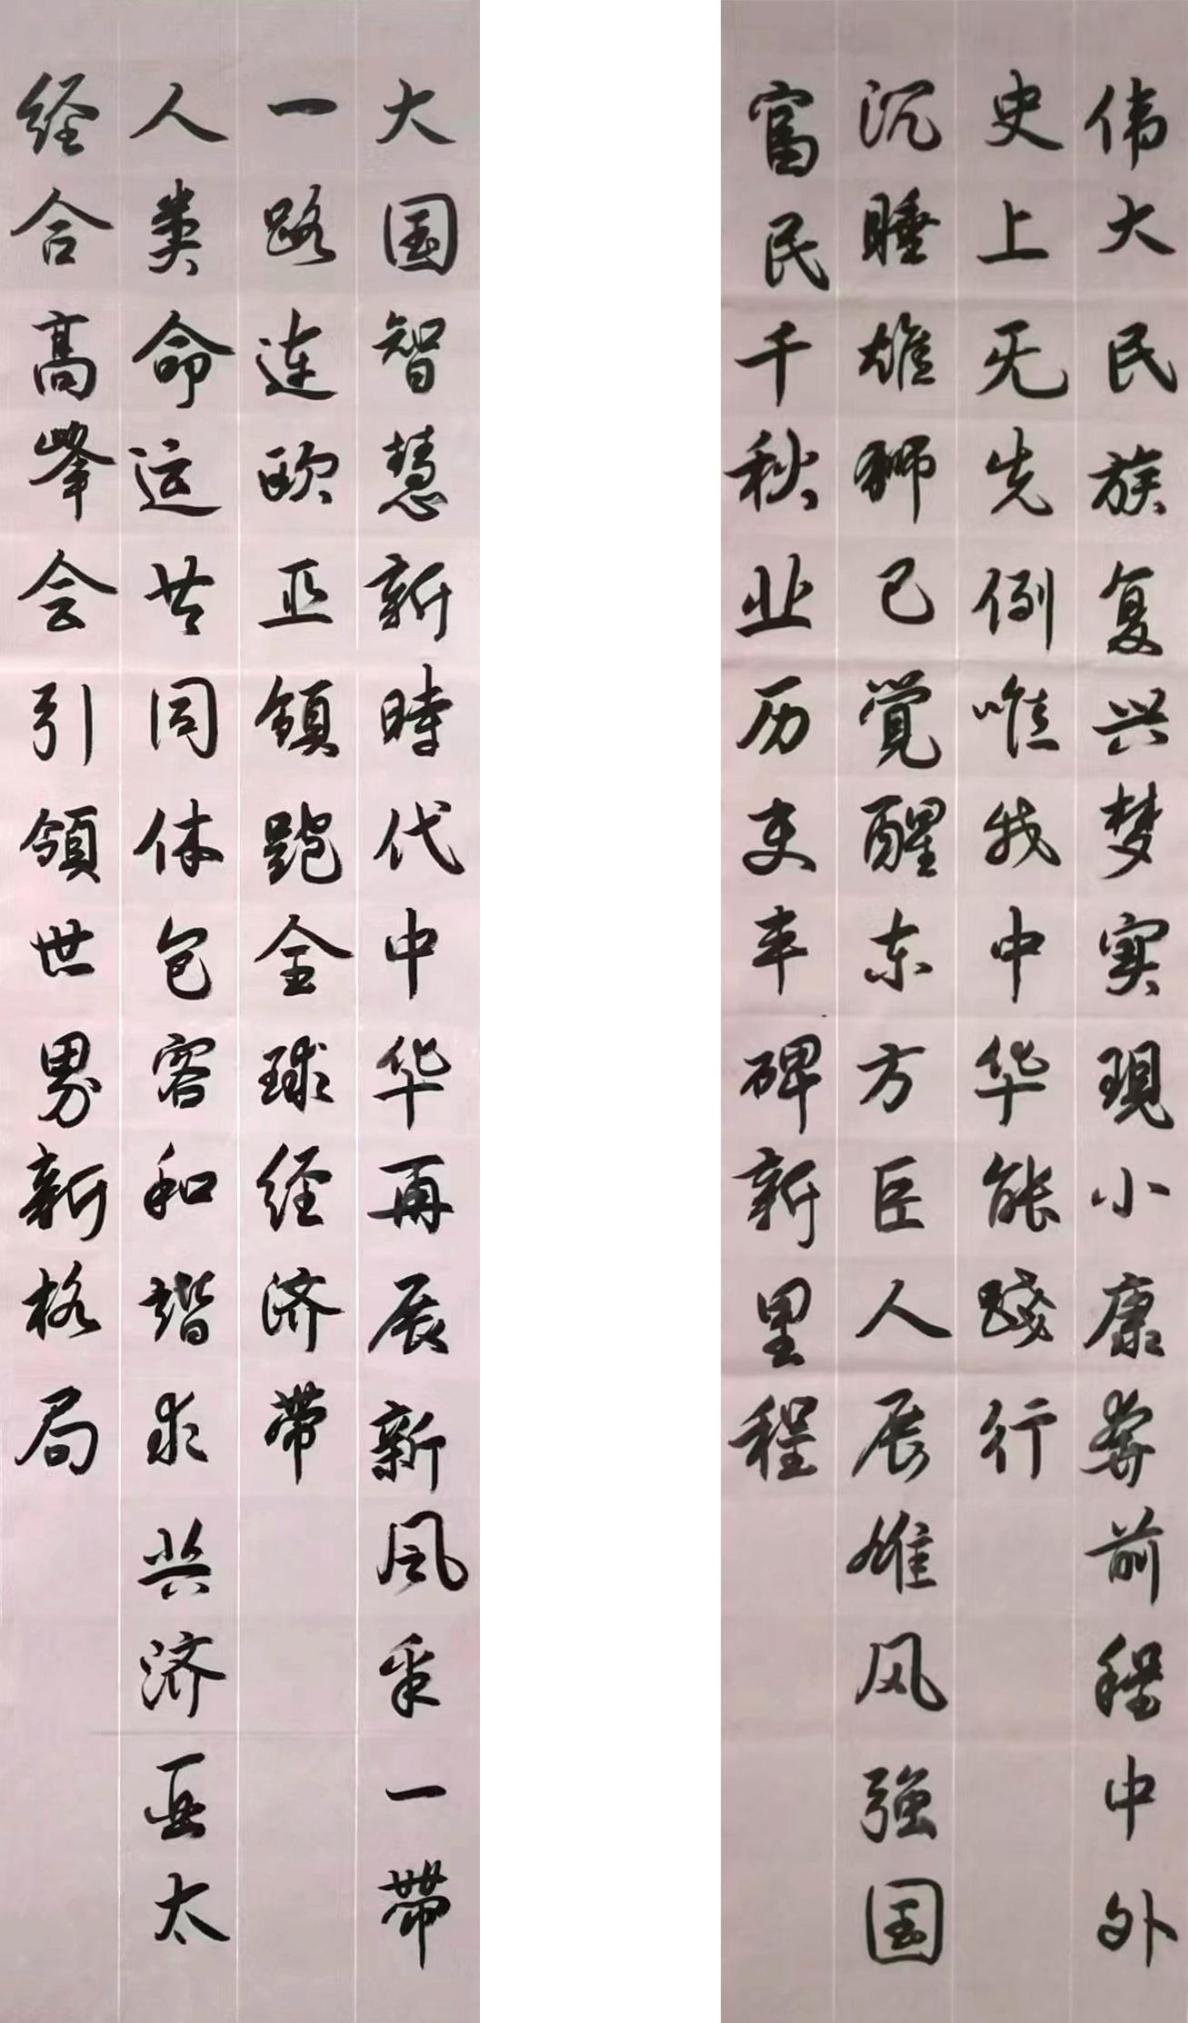 伟大民族复兴梦实現小康奔前程中外
史上无先例唯我中华能践行
沉睡雄狮已覺醒东方巨人展雄风強国
富民千秋业历史丰碑新里程
大国智慧新時代中华再展新风采一帶
一路连欧亚領跑全球经济帶
人类命运共同体包容和谐求共济亚太
经合高峯会引領世界新格局